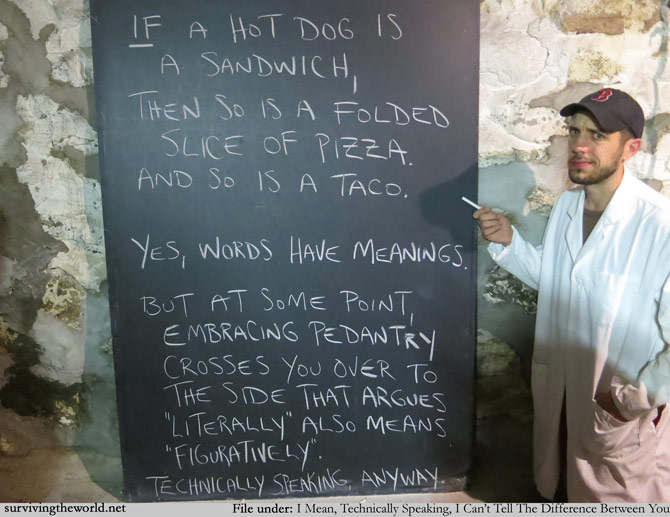 IF A HOT DOG IS
A SANDWICH,
THEN SO IS A FOLDED
SLICE OF PIZZA.
AND SO IS A TACO.
YES, WORDS HAVE MEANINGS.
BUT AT SOME POINT,
EMBRACING PEDANTRY
CROSSES YOU OVER TO
THE SIDE THAT ARGUES
"LITERALLY" ALSO MEANS
"FIGURATIVELY".
TECHNICALLY SPEAKING, ANYWAY.
B
survivingtheworld.net File under: I Mean, Technically Speaking, I Can't Tell The Difference Between You